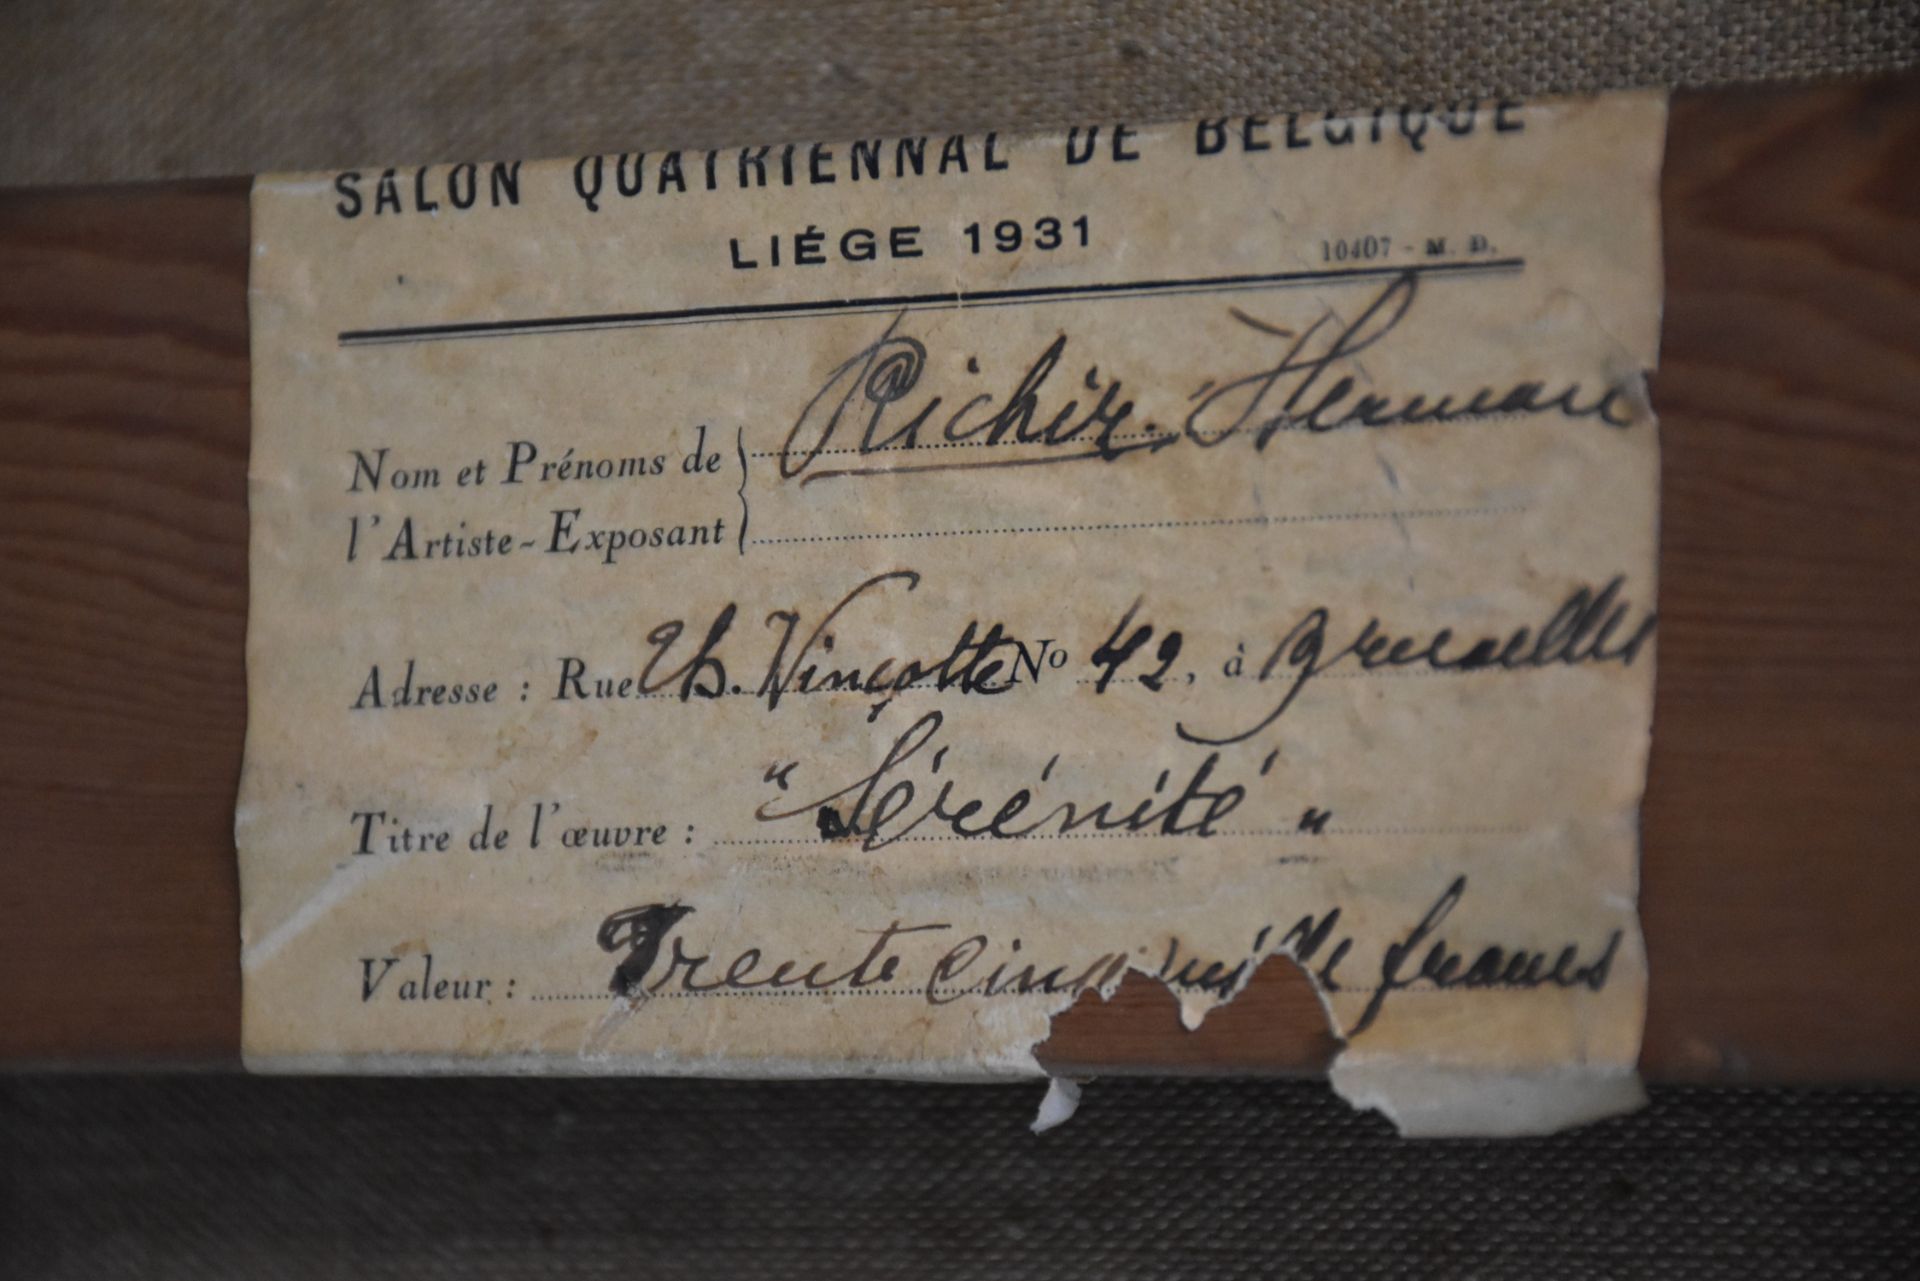 SALON QUATRIENNAL DE BELGIQUE
LIÉGE 1931
10407 - M. D.
Nom et Prénoms de Richir. Herman
l'Artiste-Exposant
Adresse : Rue Th. Vinçotte No 42, à Bruxelles
Titre de l'œuvre : "Sérénité"
Valeur : Trente cinq mille francs